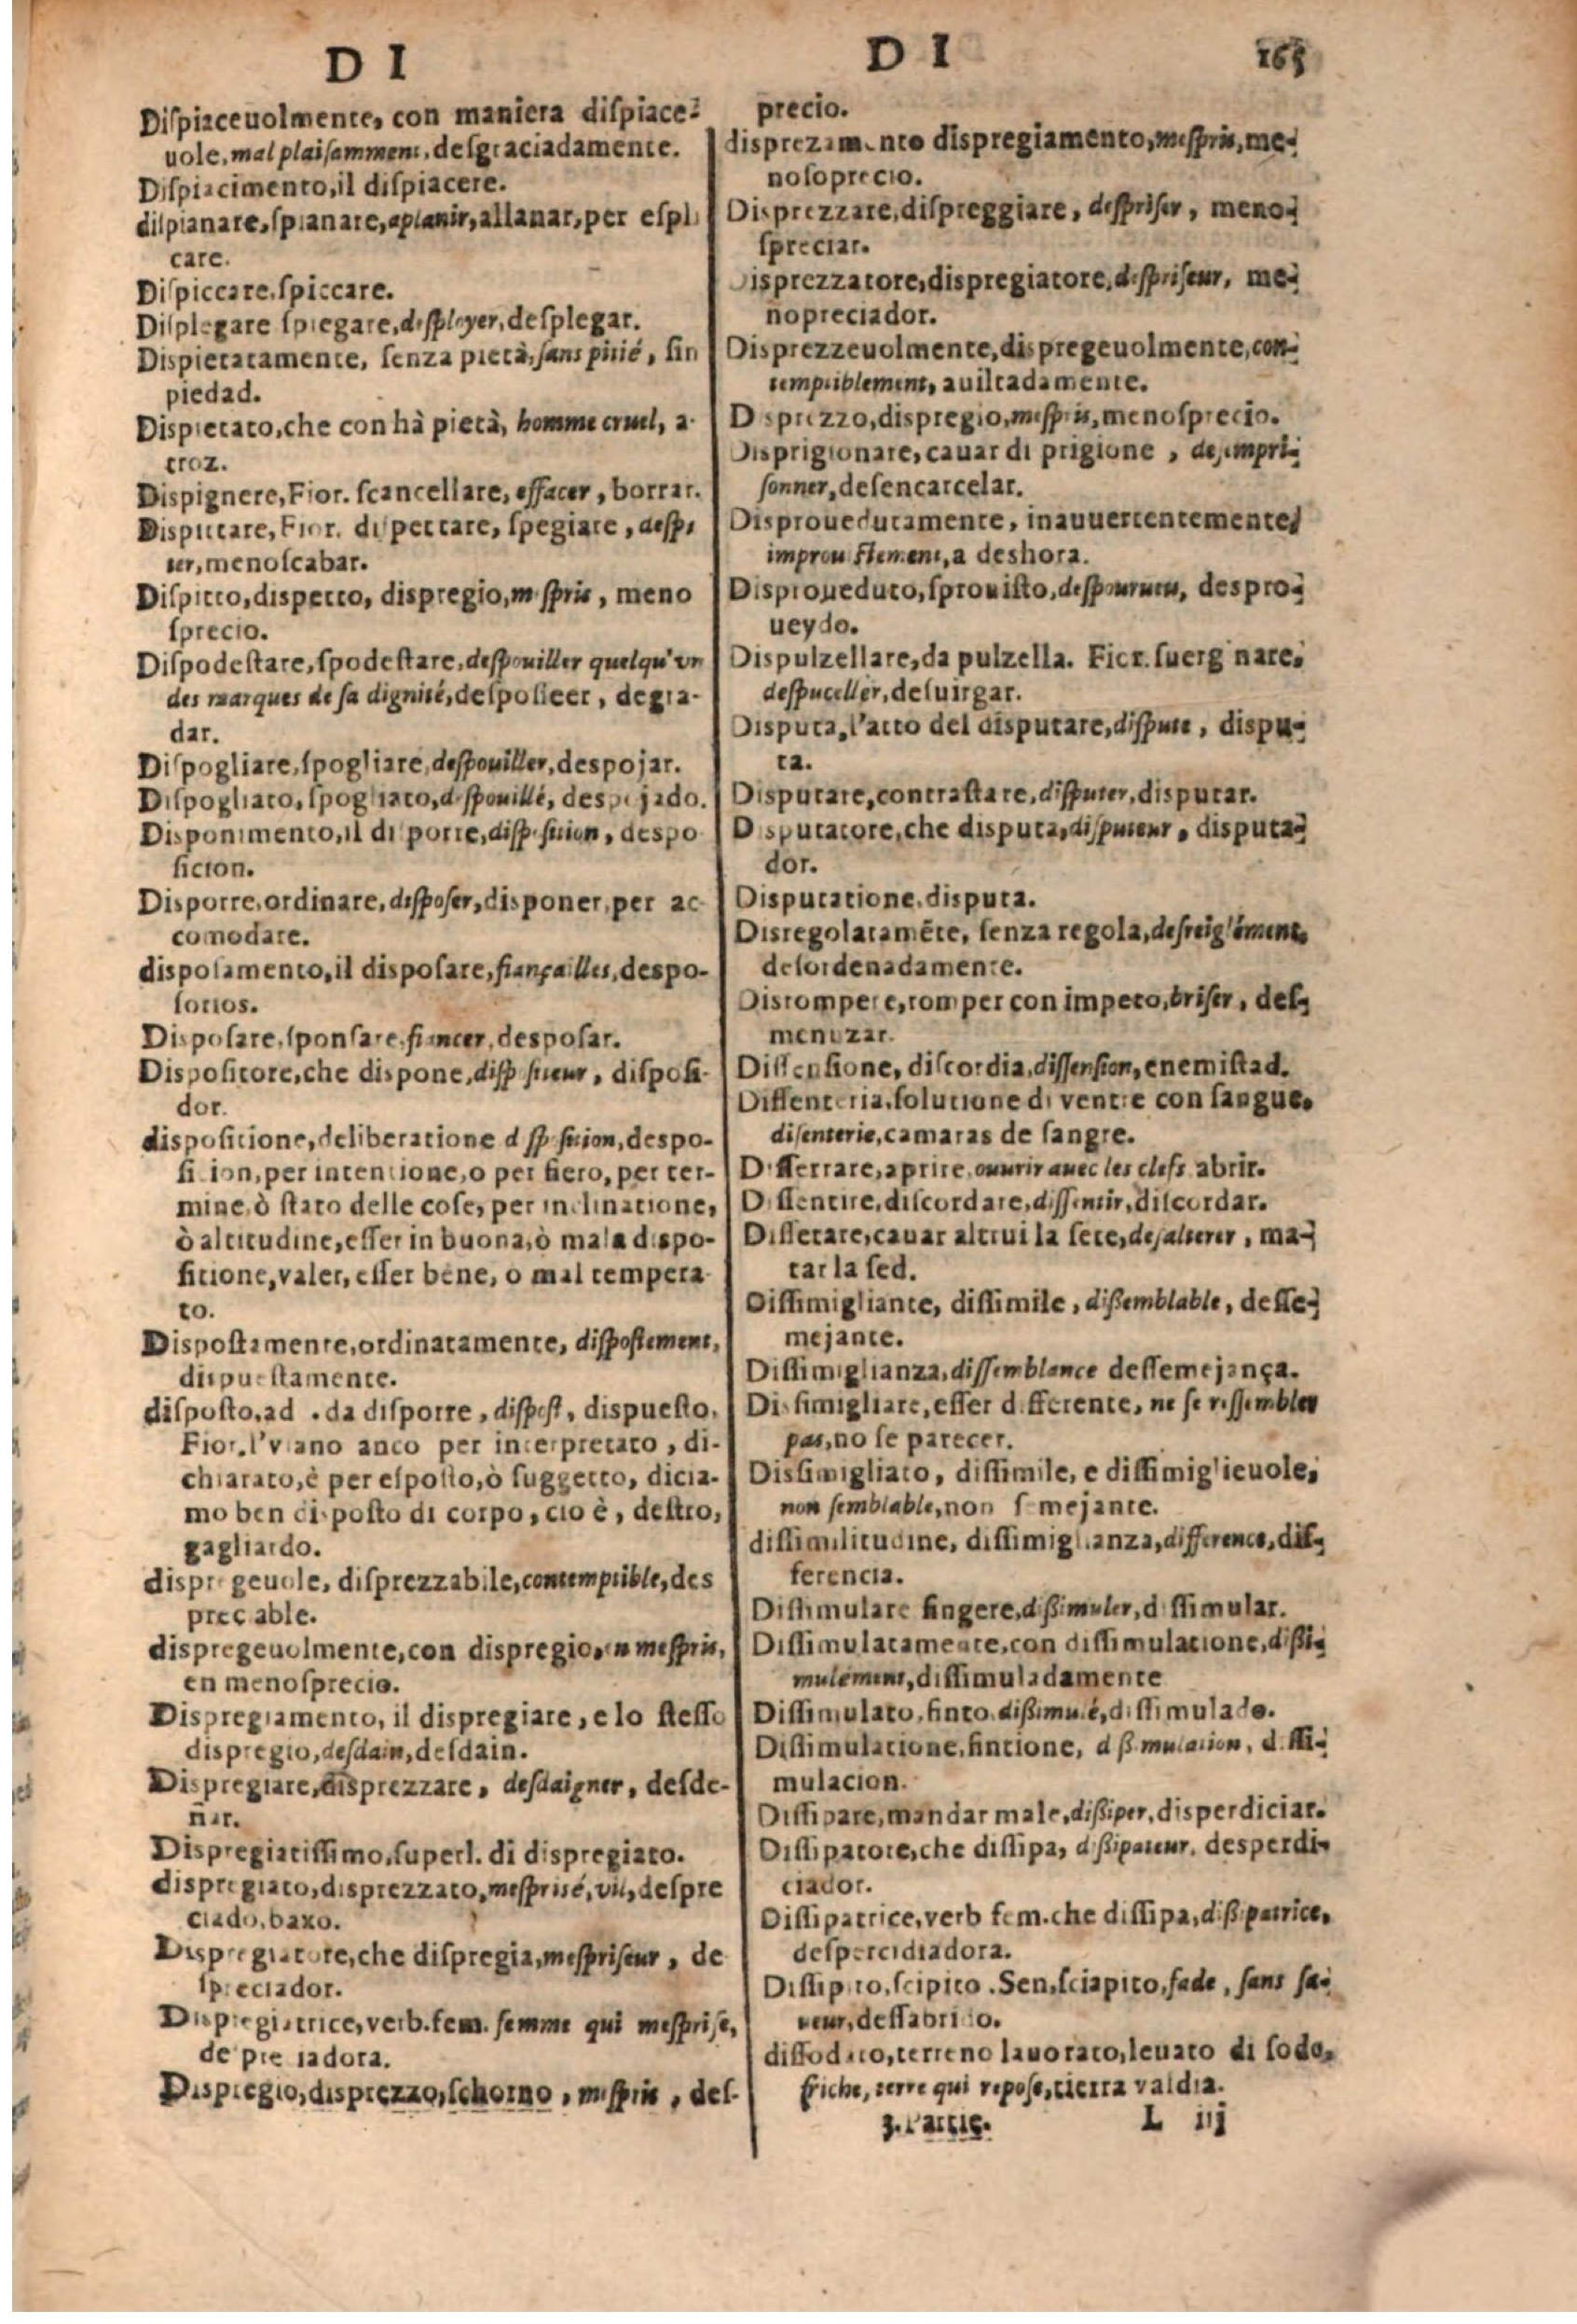 D I
D I
165
Diſpiaceuolmente, con maniera diſpiace-
uole, mal plaiſamment, deſgraciadamente.
Diſpiacimento, il diſpiacere.
diſpianare, ſpianare, aplanir, allanar, per eſpli
care.
Diſpiccare, ſpiccare.
Diſplegare ſpiegare, deſployer, deſplegar.
Diſpietatamente, ſenza pietà, ſans pitié, ſin
piedad.
Diſpietato, che con hà pietà, homme cruel, a-
troz.
Diſpignere, Fior. ſcancellare, effacer, borrar.
Diſpittare, Fior. diſpettare, ſpegiare, deſpi
ter, menoſcabar.
Diſpitto, diſpetto, dispregio, meſpris, meno
ſprecio.
Diſpodeſtare, ſpodeſtare, deſpouiller quelqu'vn
des marques de ſa dignité, deſpoſieer, degra-
dar.
Diſpogliare, ſpogliare, deſpouiller, despojar.
Diſpogliato, ſpogliato, deſpouillé, despojado.
Disponimento, il diſporre, diſpoſition, despo
ſicion.
Disporre, ordinare, diſpoſer, disponer, per ac
comodare.
dispoſamento, il dispoſare, fiançailles, despo-
ſorios.
Dispoſare, ſponſare, fiancer, desposar.
Dispoſitore, che dispone, diſpoſiteur, diſpoſi-
dor.
dispoſitione, deliberatione diſpoſition, despo-
ſicion, per intentione, o per fiero, per ter-
mine, ò ſtato delle coſe, per inclinatione,
ò altitudine, eſſer in buona, ò mala dispo-
ſitione, valer, eſſer bene, o mal tempera-
to.
Dispoſtamente, ordinatamente, diſpoſtement,
diſpueſtamente.
diſpoſto, ad . da diſporre, diſpoſt, dispueſto.
Fior. l'vſano anco per interpretato, di-
chiarato, è per eſpoſto, ò ſuggetto, dicia-
mo ben diſpoſto di corpo, cio è, deſtro,
gagliardo.
dispregeuole, diſprezzabile, contemptible, des
preçable.
dispregeuolmente, con dispregio, en meſpris,
en menoſprecio.
Dispregiamento, il dispregiare, e lo ſteſſo
dispregio, deſdain, deſdain.
Dispregiare, disprezzare, deſdaigner, deſde-
ñar.
Dispregiatiſſimo, ſuperl. di dispregiato.
dispregiato, disprezzato, meſpriſé, vil, deſpre
ciado, baxo.
Dispregiatore, che diſpregia, meſpriſeur, de
ſpreciador.
Dispregiatrice, verb. fem. femme qui meſpriſe,
deſpreciadora.
Dispregio, disprezzo, ſchorno, meſpris, deſ-
precio.
disprezamento dispregiamento, meſpris, me-
noſoprecio.
Disprezzare, diſpreggiare, deſpriſer, meno-
ſpreciar.
Disprezzatore, dispregiatore, deſpriſeur, me-
nopreciador.
Disprezzeuolmente, dispregeuolmente, con-
temptiblement, auiltadamente.
Disprezzo, dispregio, meſpris, menoſprecio.
Disprigionare, cauar di prigione, deſempri-
ſonner, deſencarcelar.
Disprouedutamente, inauuertentemente,
improuiſtement, a deshora.
Disproueduto, ſprouiſto, deſpourueu, despro-
ueydo.
Dispulzellare, da pulzella. Fior. ſuerginare,
deſpuceller, deſuirgar.
Disputa, l'atto del disputare, diſpute, dispu-
ta.
Disputare, contraſtare, diſputer, disputar.
Disputatore, che disputa, diſputeur, disputa-
dor.
Disputatione, disputa.
Disregolatamẽte, ſenza regola, deſreiglément,
deſordenadamente.
Disrompere, romper con impeto, briſer, deſ-
menuzar.
Diſſenſione, diſcordia, diſſenſion, enemiſtad.
Diſſenteria, ſolutione di ventre con ſangue,
diſenterie, camaras de ſangre.
Diſſerrare, aprire, ouurir auec les clefs abrir.
Diſſentire, diſcordare, diſſentir, diſcordar.
Diſſetare, cauar altrui la ſete, deſalterer, ma-
tar la ſed.
Diſſimigliante, diſſimile, dißemblable, deſſe-
mejante.
Diſſimiglianza, diſſemblance deſſemejança.
Disſimigliare, eſſer differente, ne ſe reſſembler
pas, no ſe parecer.
Disſimigliato, diſſimile, e diſſimiglieuole,
non ſemblable, non ſemejante.
diſſimilitudine, diſſimiglianza, difference, dif-
ferencia.
Diſſimulare fingere, dißimuler, diſſimular.
Diſſimulatamente, con diſſimulatione, dißi-
mulément, diſſimuladamente
Diſſimulato, finto, dißimulé, diſſimulado.
Diſſimulatione, fintione, dißimulation, diſſi-
mulacion.
Diſſipare, mandar male, dißiper, disperdiciar.
Diſſipatore, che diſſipa, dißipateur, desperdi-
ciador.
Diſſipatrice, verb fem. che diſſipa, dißipatrice,
deſpercidiadora.
Diſſipito, ſcipito . Sen, ſciapito, fade, ſans ſa-
ueur, deſſabrido.
diſſodato, terreno lauorato, leuato di ſodo,
friche, terre qui repoſe, tierra valdia.
3. Partie.
L iij